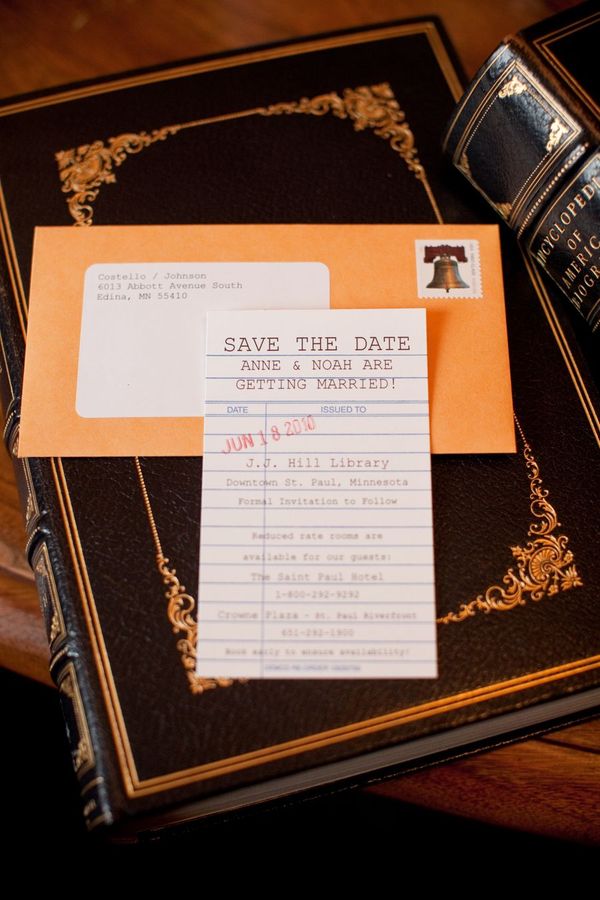 Costello / Johnson
6013 Abbott Avenue South
Edina, MN 55410
SAVE THE DATE
ANNE & NOAH ARE
GETTING MARRIED!
DATE ISSUED TO
JUN 18 2010
J.J. Hill Library
Downtown St. Paul, Minnesota
Formal Invitation to Follow
Reduced rate rooms are
available for our guests:
The Saint Paul Hotel
1-800-292-9292
Crowne Plaza - St. Paul Riverfront
651-292-1900
Book early to ensure availability!
ENCYCLOPEDI
OF
AMERIC
BIOGR